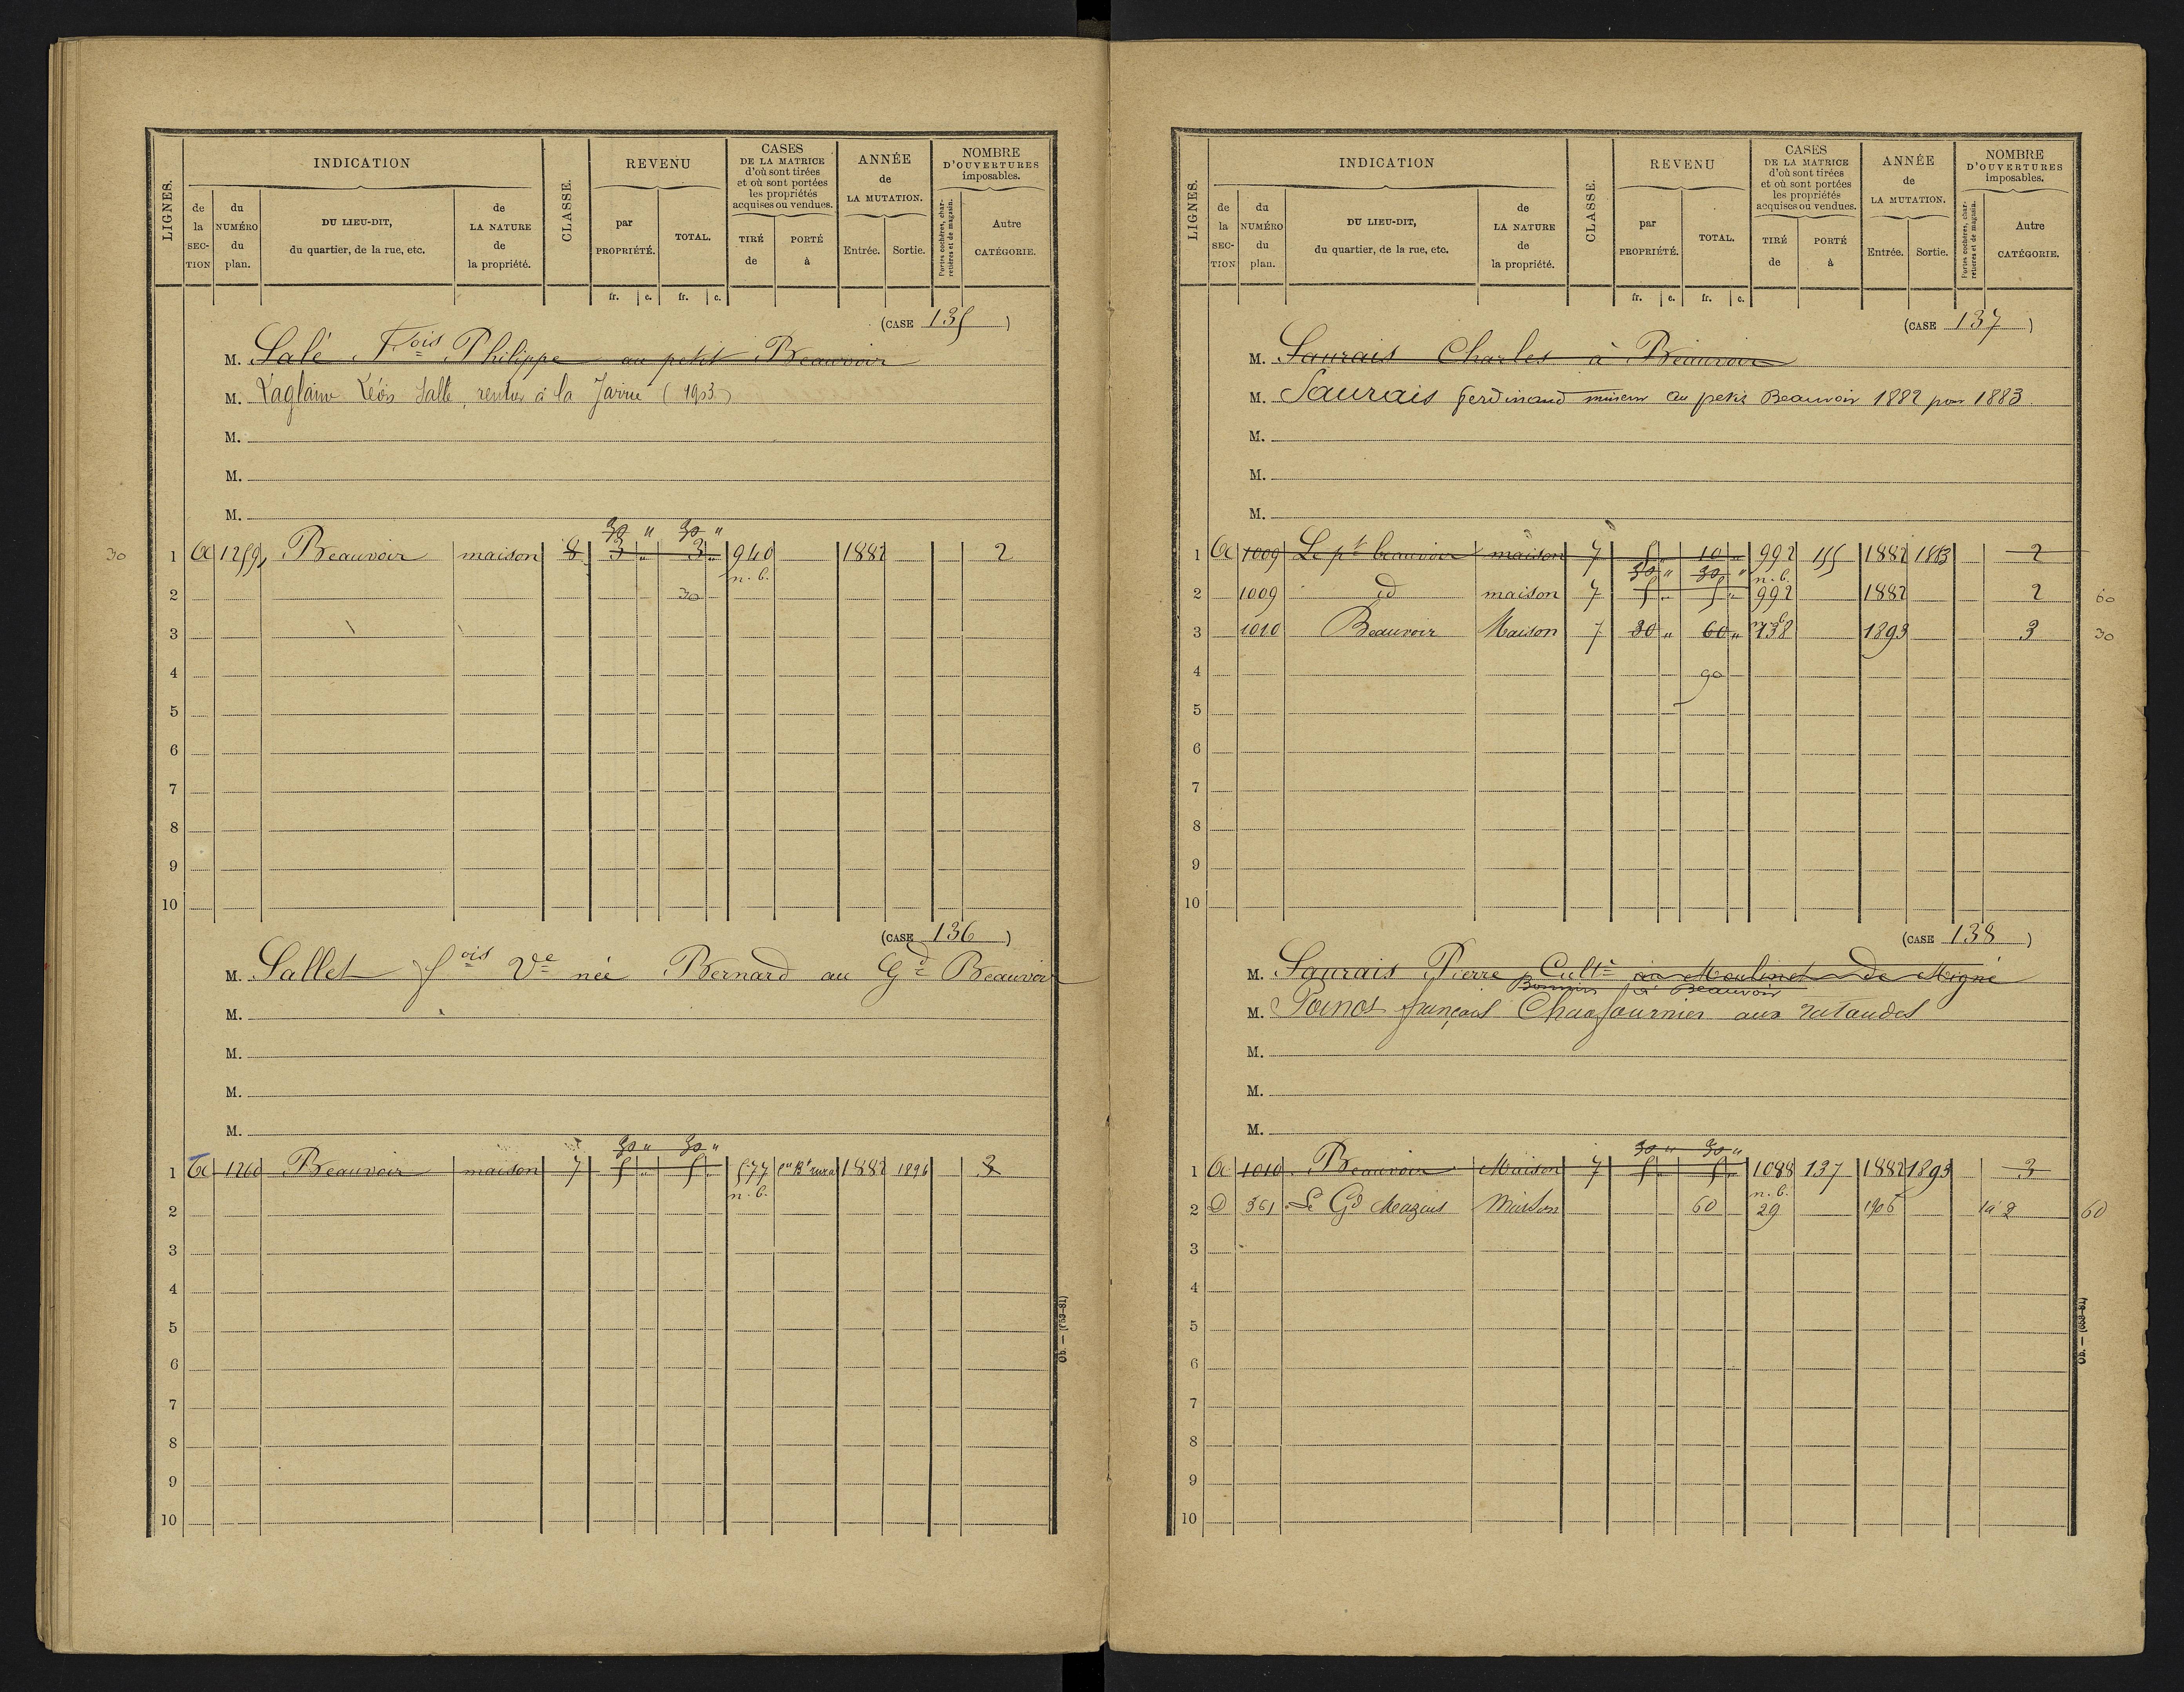 LIGNES. INDICATION CLASSE. REVENU CASES DE LA MATRICE d'où sont tirées et où sont portées les propriétés acquises ou vendues. ANNÉE de LA MUTATION. NOMBRE D'OUVERTURES imposables.
de la SECTION du NUMÉRO du plan. DU LIEU-DIT, du quartier, de la rue, etc. de LA NATURE de la propriété. par PROPRIÉTÉ. TOTAL. TIRÉ de PORTÉ à Entrée. Sortie. Portes cochères, charretières et de magasin. Autre CATÉGORIE.
fr. c. fr. c.
(CASE 135)
M. Salé Fois Philippe au petit Beauvoir
M. Laglaine Léon Sallé, rentier à la Jarrie (1903)
M.
M.
M.
30 " 30 "
30 1 A 1259 Beauvoir maison 8 3 " 3 " 940 1882 2
n.b.
2 30
3
4
5
6
7
8
9
10
(CASE 136)
M. Sallet fois Ve née Bernard au Gd Beauvoir
M.
M.
M.
M.
30 " 30 "
1 A 1260 Beauvoir maison 7 5 " 5 " 577 1882 1896 3
n.b.
2
3
4
5
6
7
8
9
10
Ob. — (653-81)
LIGNES. INDICATION CLASSE. REVENU CASES DE LA MATRICE d'où sont tirées et où sont portées les propriétés acquises ou vendues. ANNÉE de LA MUTATION. NOMBRE D'OUVERTURES imposables.
de la SECTION du NUMÉRO du plan. DU LIEU-DIT, du quartier, de la rue, etc. de LA NATURE de la propriété. par PROPRIÉTÉ. TOTAL. TIRÉ de PORTÉ à Entrée. Sortie. Portes cochères, charretières et de magasin. Autre CATÉGORIE.
fr. c. fr. c.
(CASE 137)
M. Saurais Charles à Beauvoir
M. Saurais ferdinand mineur au petit Beauvoir 1882 pour 1883.
M.
M.
M.
1 A 1009 Le pt beauvoir maison 7 5 " 10 " 992 155 1882 1883 2
30 " 30 " n.b.
2 1009 id maison 7 5 " 5 " 992 1882 2 60
3 1010 Beauvoir Maison 7 30 " 60 " 138 1893 3 30
4 90
5
6
7
8
9
10
(CASE 138)
M. Saurais Pierre Cultr au Moulinet de Migné
Bonnin à Beauvoir
M. français Chaufournier aux
M.
M.
M.
30 " 30 "
1 A 1010 Beauvoir Maison 7 5 " 5 " 1088 137 1882 1893 3
n.b.
2 D 361 Le Gd Mazais Maison 60 29 1906 2 60
3
4
5
6
7
8
9
10
Ob. — (653-81)